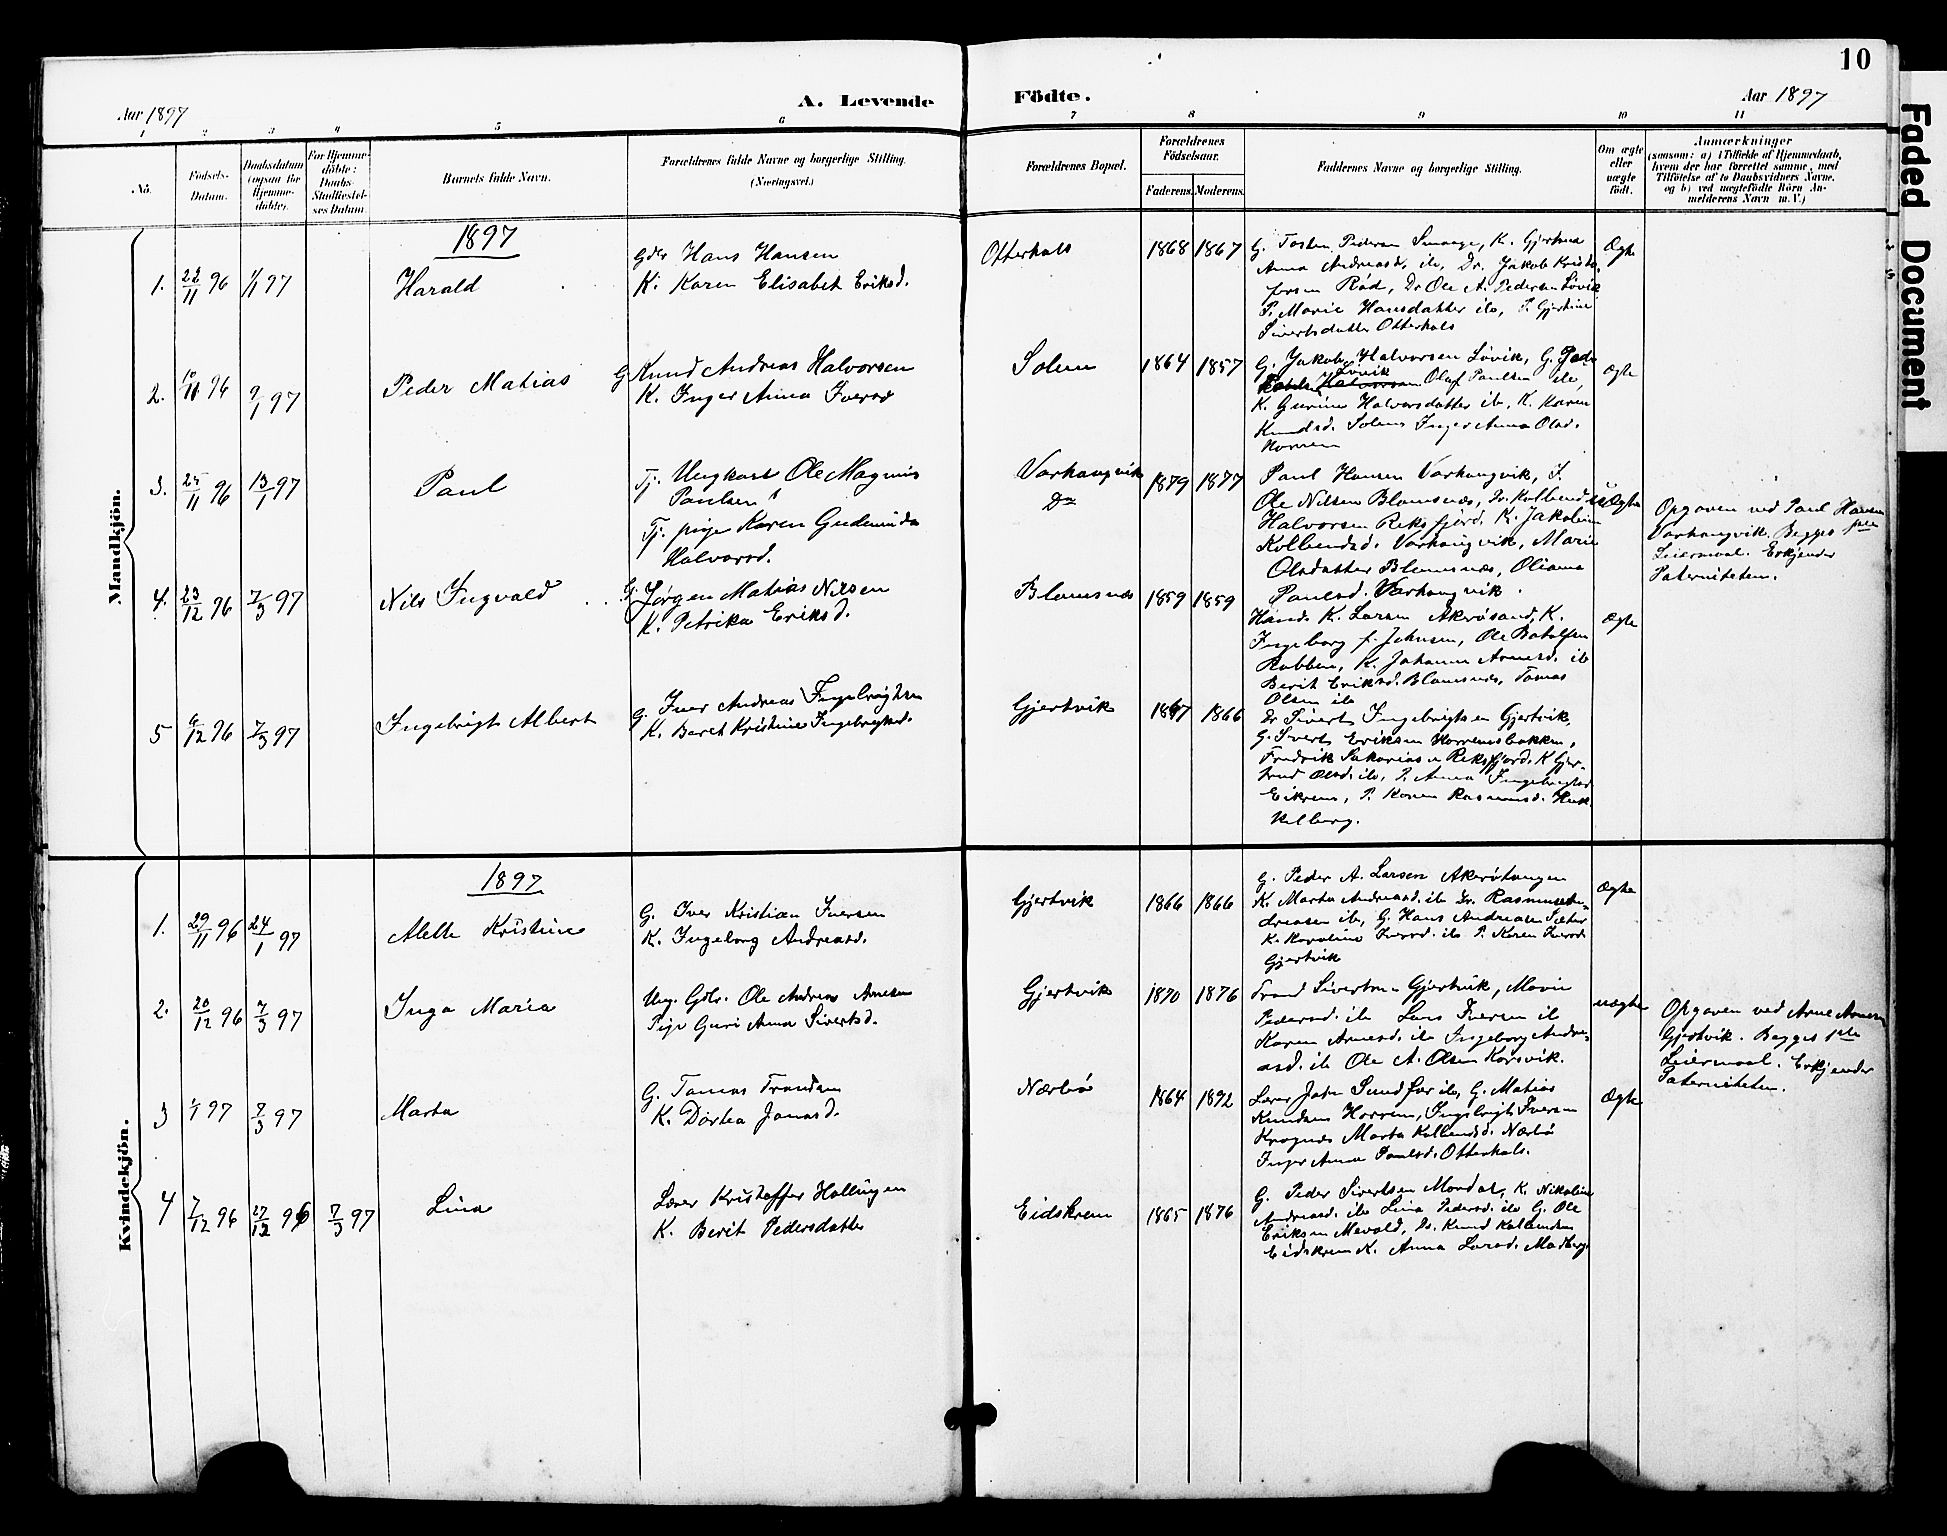 10
Faded Document
Aar 1897
A. Levende Födte.
Aar 1897
1 2 3 4 5 6 7 8 9 10 11
No.
Födsels-Datum.
Daabsdatum (ogsaa for Hjemmedöbte).
For Hjemmedöbte: Daabs-Stadfæstelses Datum.
Barnets fulde Navn.
Forældrenes fulde Navne og borgerlige Stilling.
(Næringsvei.)
Forældrenes Bopæl.
Forældrenes Födselsaar.
Faderens. Moderens.
Faddernes Navne og borgerlige Stilling.
Om ægte eller uægte födt.
Anmærkninger
(saasom: a) i Tilfælde af Hjemmedaab,
hvem der har forrettet samme, med
Tilföielse af to Daabsvidners Navne.
og b) ved uægtefödte Börn Anmelderens Navn m.V.)
Mandkjön.
1897
1. 1/1 97 Harald
Gdr Hans Hansen
K. Karen Elisabet Eriksd.
Otterhals 1868 1867
G. Tosten Pedersen Smaage, K. Gjertrud
Anna Andreasd. ib, Dr. Jakob Kristofersen Röd, Dr Ole A. Pedersen Lövik
P. Marie Hansdatter ib, P. Gjertine
Sivertsdatter Otterhals
Ægte
2. 9/1 97 Peder Matias
G Knud Andreas Halvorsen
K. Inger Anna Iversd
Solem 1864 1857
G. Jakob Halvorsen Lövik, G.
Lövik
Olaf Paulsen ib,
K. Gurine Halvorsdatter ib, K. Karen
Knudsd. Solem Inger Anna Olsd.
Horrem
ægte
3. 25/11 96 13/1 97 Paul
Tj. Ungkarl Ole Magnus
Paulsen
Tj. pige Karen Gudmunda
Halvorsd.
Varhaugvik
Do
1879 1877
Paul Hansen Varhaugvik, I.
Ole Nilsen Blamsnæs, Dr. Kolbend
Halvorsen Reksfjord. K. Jakobine
Kolbendsd. Varhaugvik, Marie
Olsdatter Blamsnæs, Oliana
Paulsd. Varhaugvik.
uægte
Opgaven ved Paul Hansen
Varhaugvik. Begges 1ste
Leiermaal. Erkjender
Paterniteten.
4. 23/12 96 7/3 97 Nils Ingvald
G. Jörgen Matias Nilsen
K. Petrika Eriksd.
Blamsnæs 1859 1859
Hand. K. Larsen Akerösund, K.
Ingeborg f. Johnsen, Ole Botolfsen
Rabben, K. Johanna Arnesd. ib
Berit Eriksd. Blamsnæs, Tomas
Olsen ib
Ægte
5 6/12 96 7/3 97 Ingebrigt Albert
G. Iver Andreas Ingebrigtsen
K. Beret Kristine Ingebrigtsd.
Gjertvik 1867 1866
Dr Sivert Ingebrigtsen Gjertvik,
G. Sivert Eriksen Horremsbakken,
Fredrik Sakariasen Reksfjord. K Gjertrud Olsd. ib, P. Anna Ingebrigtsd
Eikrem, P. Karen Rasmusd.
Kvindekjön.
1897
1. 29/11 96 24/1 97 Alette Kristine
G. Iver Kristian Iversen
K. Ingeborg Andreasd.
Gjertvik 1866 1866
G. Peder A. Larsen Akerötangen
K. Marta Andreasd. ib Dr. Rasmus Andreasen ib, G. Hans Andreasen Sæter
K. Karoline Iversd. ib P. Karen Iversd.
Gjertvik
Ægte
2. 20/12 96 7/3 97 Inga Maria
Ung. Gdr. Ole Andreas Arnesen
Pige Guri Anna Sivertsd.
Gjertvik 1870 1876
Trond Sivertsen Gjertvik, Marie
Pedersd. ib Lars Iversen ib
Karen Arnesd. ib Ingeborg Andreasd. ib Ole A. Olsen Korsvik.
uægte
Opgaven ved Arne Arnesen
Gjertvik. Begges 1ste
Leiermaal. Erkjender
Paterniteten.
3 1/1 97 7/3 97 Marta
G. Tomas Trondsen
K. Dortea Jonasd.
Nærbö 1864 1892
Lærer John Sundför ib, G. Matias
Knudsen Horrem, Ingebrigt Iversen
Krognæs Marta Kolbendsd. Nærbö
Inger Anna Paulsd. Otterhals.
Ægte
4 7/12 96 27/12 96 7/3 97 Lina
Lærer Kristoffer Hollingen
K. Berit Pedersdatter
Eidskrem 1865 1876
G. Peder Sivertsen Mordal, K. Nikoline
Andreasd. ib Lina Pedersd. ib G. Ole
Eriksen Mevold, Dr. Knud Kolbendsen
Eidskrem K. Anna Larsd.